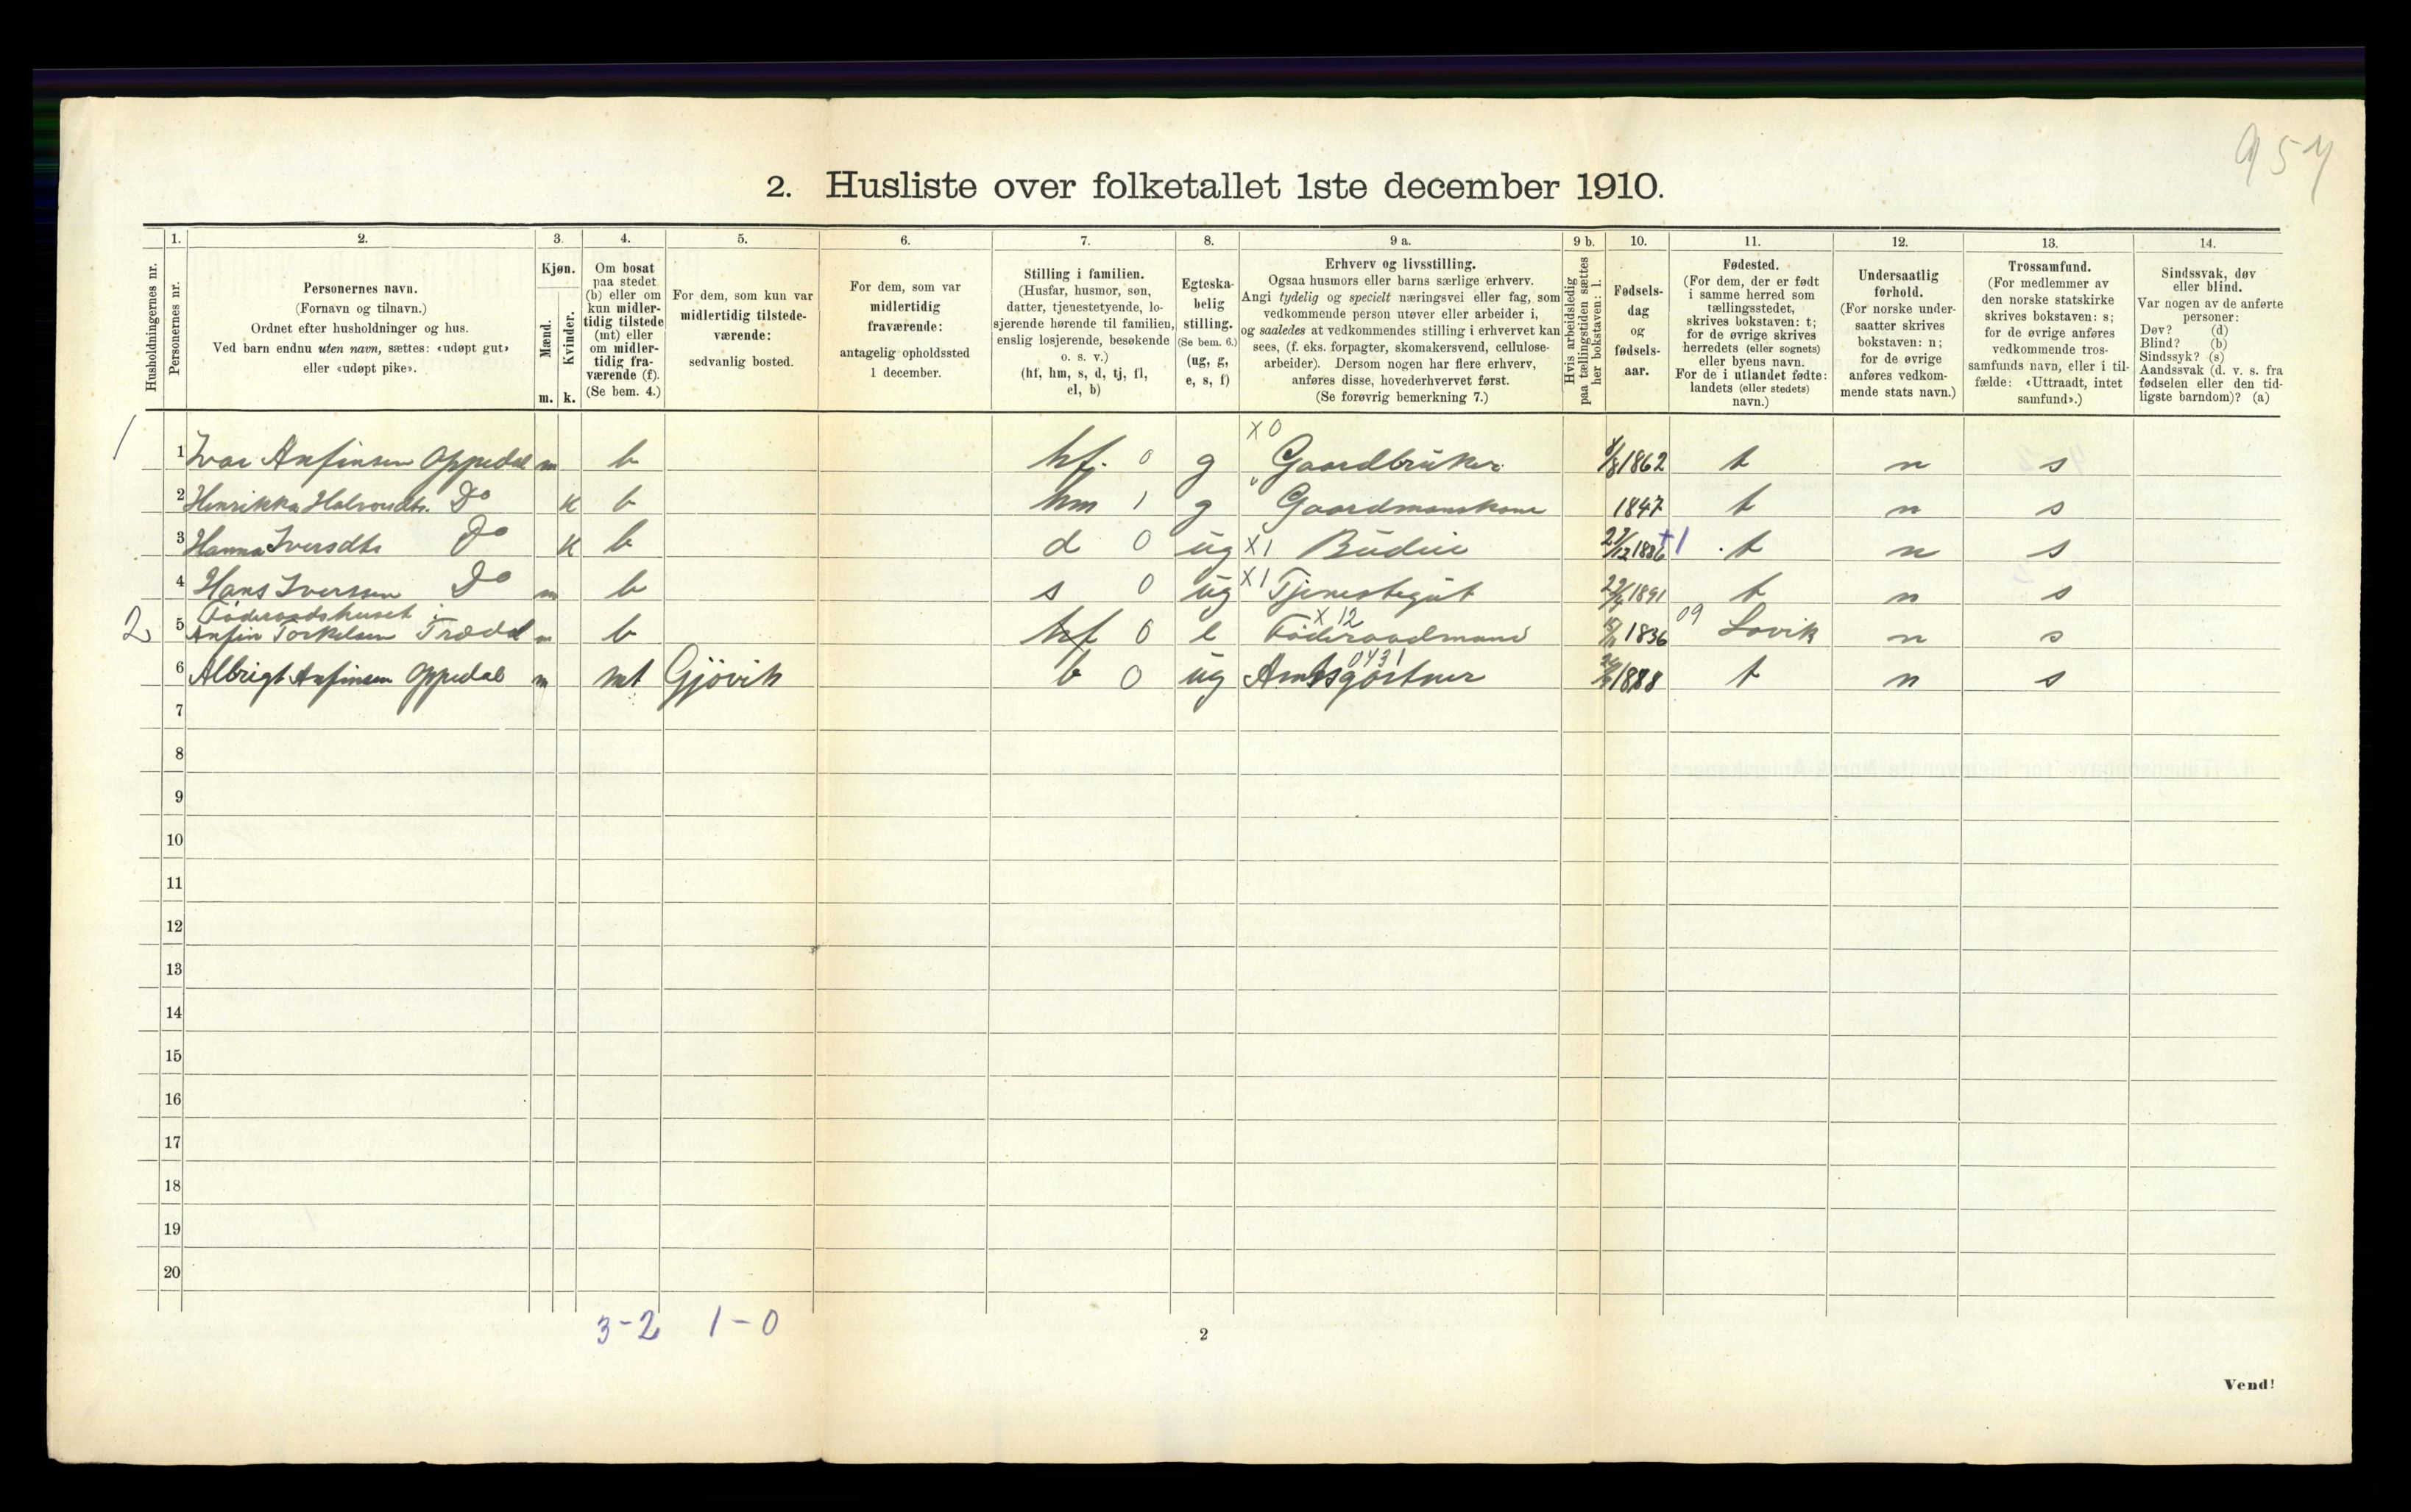 957
2. Husliste over folketallet 1ste december 1910.
Husholdningernes nr.
1. Personernes nr.
2. Personernes navn.
(Fornavn og tilnavn.)
Ordnet efter husholdninger og hus.
Ved barn endnu uten navn, sættes: «udøpt gut»
eller «udøpt pike».
3. Kjøn.
Mænd. m.
Kvinder. k.
4. Om bosat
paa stedet
(b) eller om
kun midler-
tidig tilstede
(mt) eller
om midler-
tidig fra-
værende (f).
(Se bem. 4.)
5. For dem, som kun var
midlertidig tilstede-
værende:
sedvanlig bosted.
6. For dem, som var
midlertidig
fraværende:
antagelig opholdssted
1 december.
7. Stilling i familien.
(Husfar, husmor, søn,
datter, tjenestetyende, lo-
sjerende hørende til familien,
enslig losjerende, besøkende
o. s. v.)
(hf, hm, s, d, tj, fl,
el, b)
8. Egteska-
belig
stilling.
(Se bem. 6.)
(ug, g,
e, s, f)
9 a. Erhverv og livsstilling.
Ogsaa husmors eller barns særlige erhverv.
Angi tydelig og specielt næringsvei eller fag, som
vedkommende person utøver eller arbeider i,
og saaledes at vedkommendes stilling i erhvervet kan
sees, (f. eks. forpagter, skomakersvend, cellulose-
arbeider). Dersom nogen har flere erhverv,
anføres disse, hovederhvervet først.
(Se forøvrig bemerkning 7.)
9 b. Hvis arbeidsledig
paa tællingstiden sættes
her bokstaven: l.
10. Fødsels-
dag
og
fødsels-
aar.
11. Fødested.
(For dem, der er født
i samme herred som
tællingsstedet,
skrives bokstaven: t;
for de øvrige skrives
herredets (eller sognets)
eller byens navn.
For de i utlandet fødte:
landets (eller stedets)
navn.)
12. Undersaatlig
forhold.
(For norske under-
saatter skrives
bokstaven: n;
for de øvrige
anføres vedkom-
mende stats navn.)
13. Trossamfund.
(For medlemmer av
den norske statskirke
skrives bokstaven: s;
for de øvrige anføres
vedkommende tros-
samfunds navn, eller i til-
fælde: «Uttraadt, intet
samfund».)
14. Sindssvak, døv
eller blind.
Var nogen av de anførte
personer:
Døv? (d)
Blind? (b)
Sindssyk? (s)
Aandssvak (d. v. s. fra
fødselen eller den tid-
ligste barndom)? (a)
x 0
1 1 Ivar Anfinsen Oppedal m b hf. 0 g Gaardbruker 1862 t n s
2 Henrikka Halvorsdtr. Do k b hm 1 g " Gaardmanskone 1847 t n s
3 Hanna Iversdtr Do k b d 0 ug x1 Budeie 1886 +1 t n s
4 Hans Iversen Do m b s 0 ug x1 Tjenestegut 1891 t n s
Föderaadshuset i x 12 09
2 5 Anfin Torkelsen Trædal m b hf 0 e Föderaadmand 1836 Lavik n s
0431
6 Albrigt Anfinsen Oppedal m mt Gjövik b 0 ug Amtsgartner 1888 t n s
7
8
9
10
11
12
13
14
15
16
17
18
19
20
3-2 1-0
2
Vend!